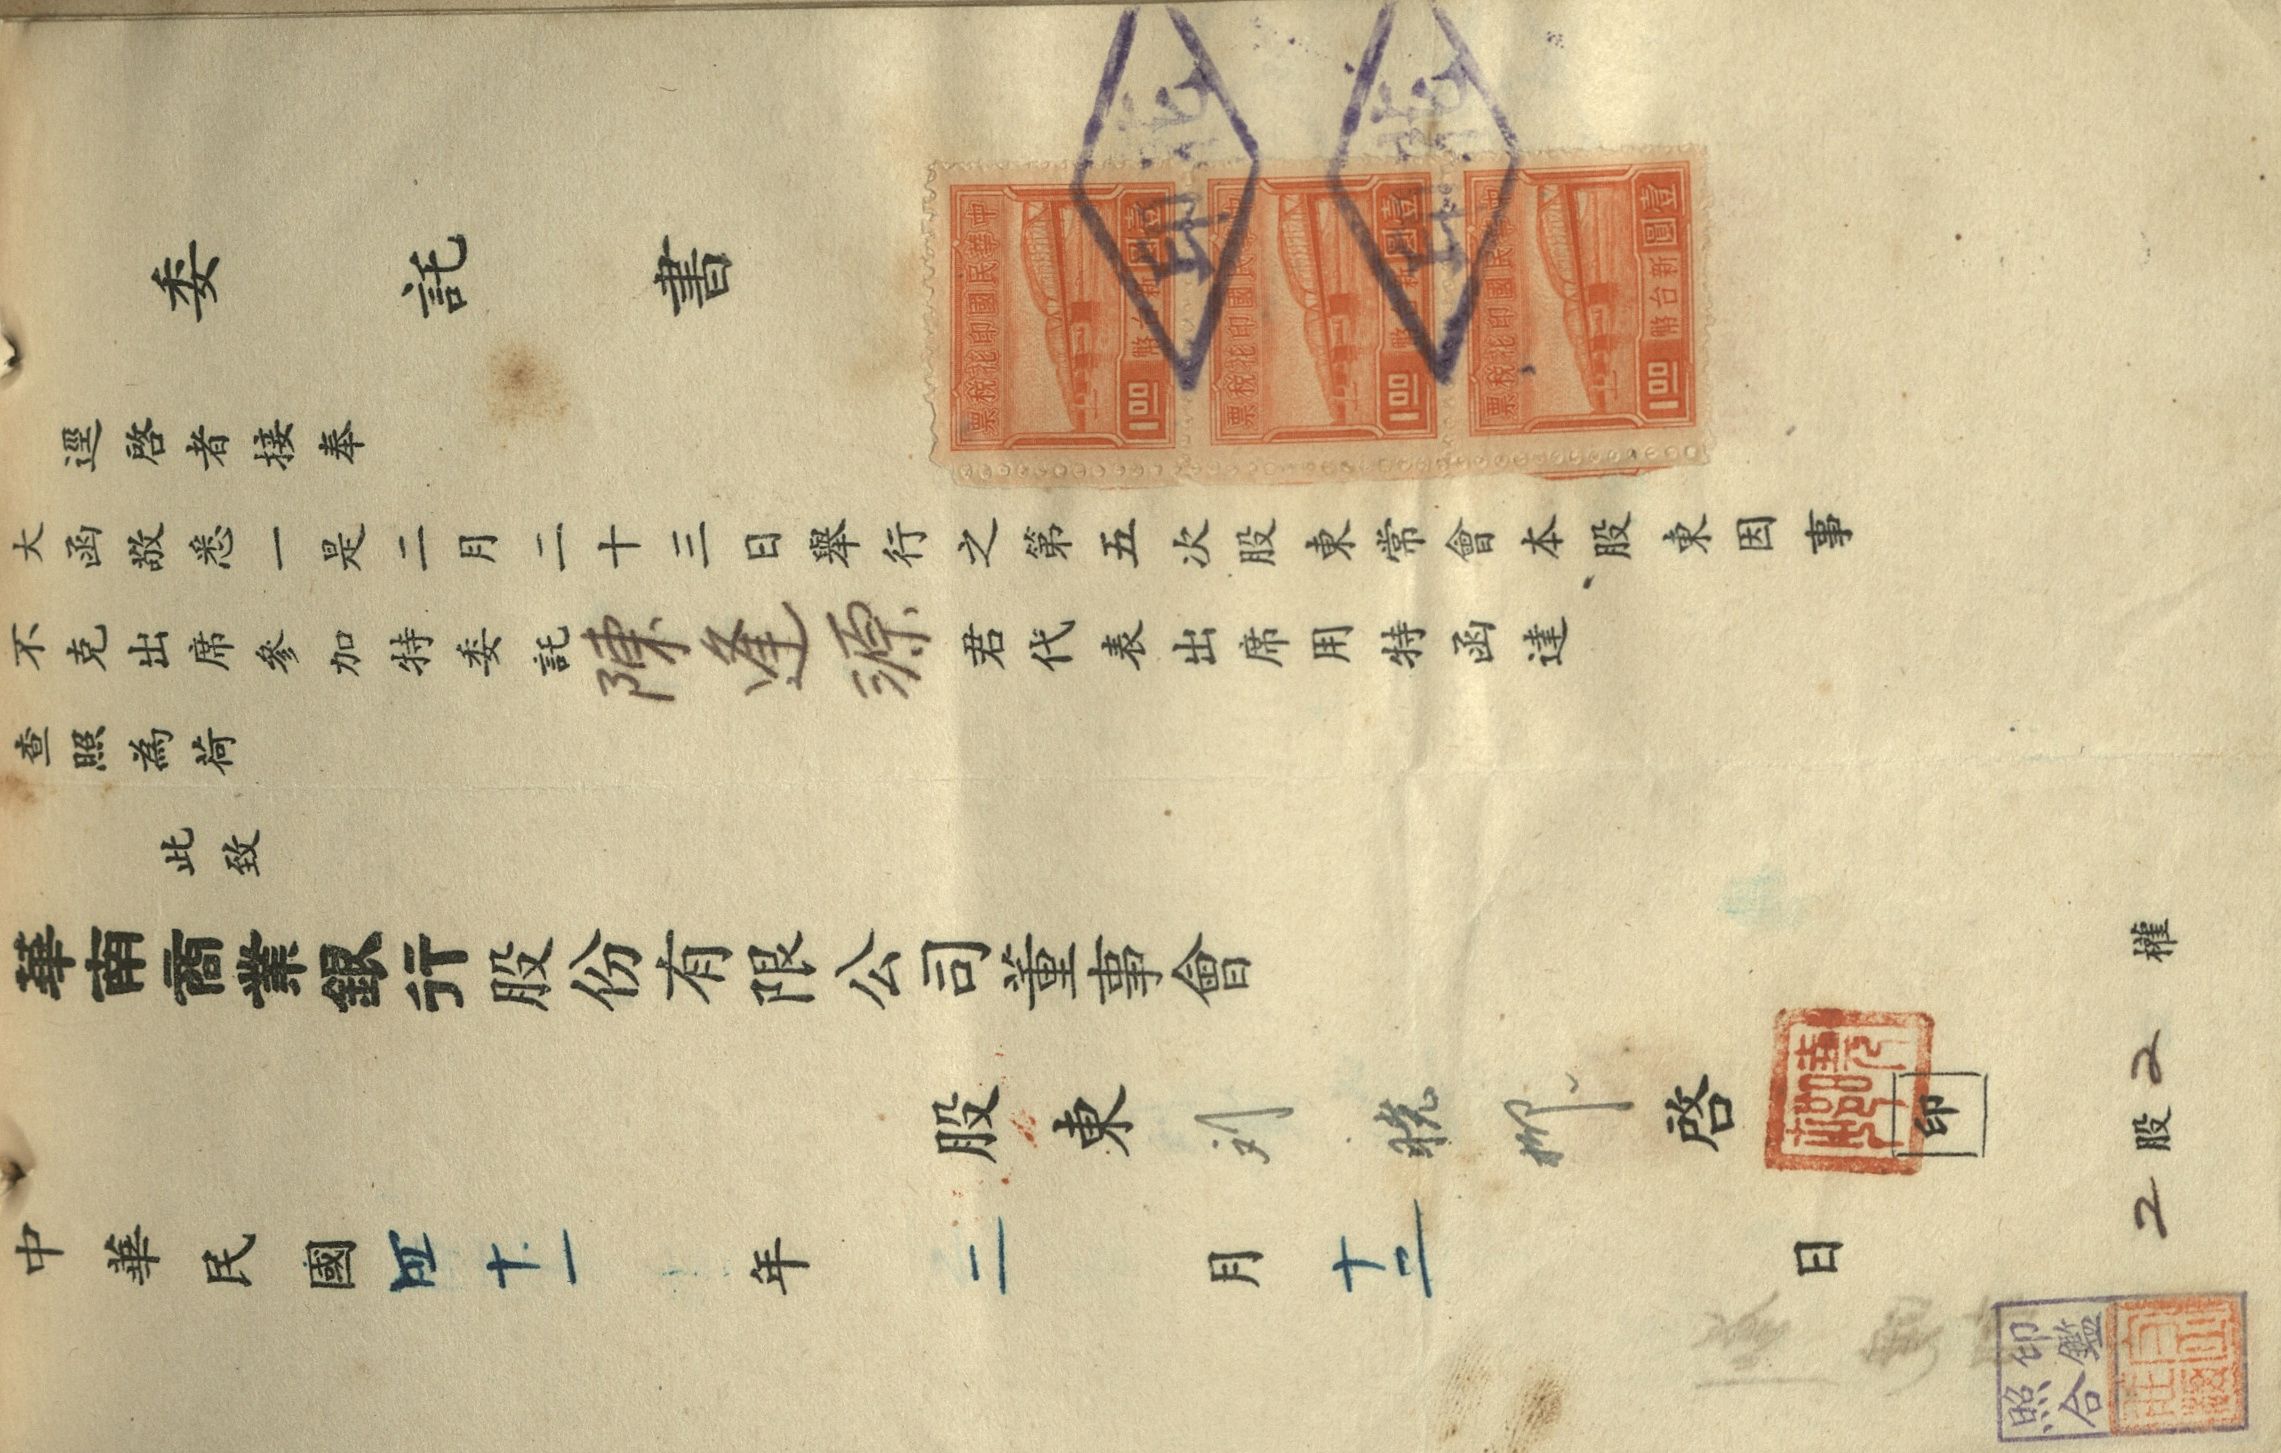 委託書
逕啓者接奉
大函敬悉一是二月二十三日舉行之第五次股東常會本股東因事
不克出席參加特委託陳逢源君代表出席用特函達
查照為荷
此致
華南商業銀行股份有限公司董事會
股東 啓 印
中華民國四十一年二月十二日
2股2權
中華民國印花稅票
壹圓
新台幣
1.00
中華民國印花稅票
壹圓
新台幣
1.00
中華民國印花稅票
壹圓
新台幣
1.00
印鑑
照合